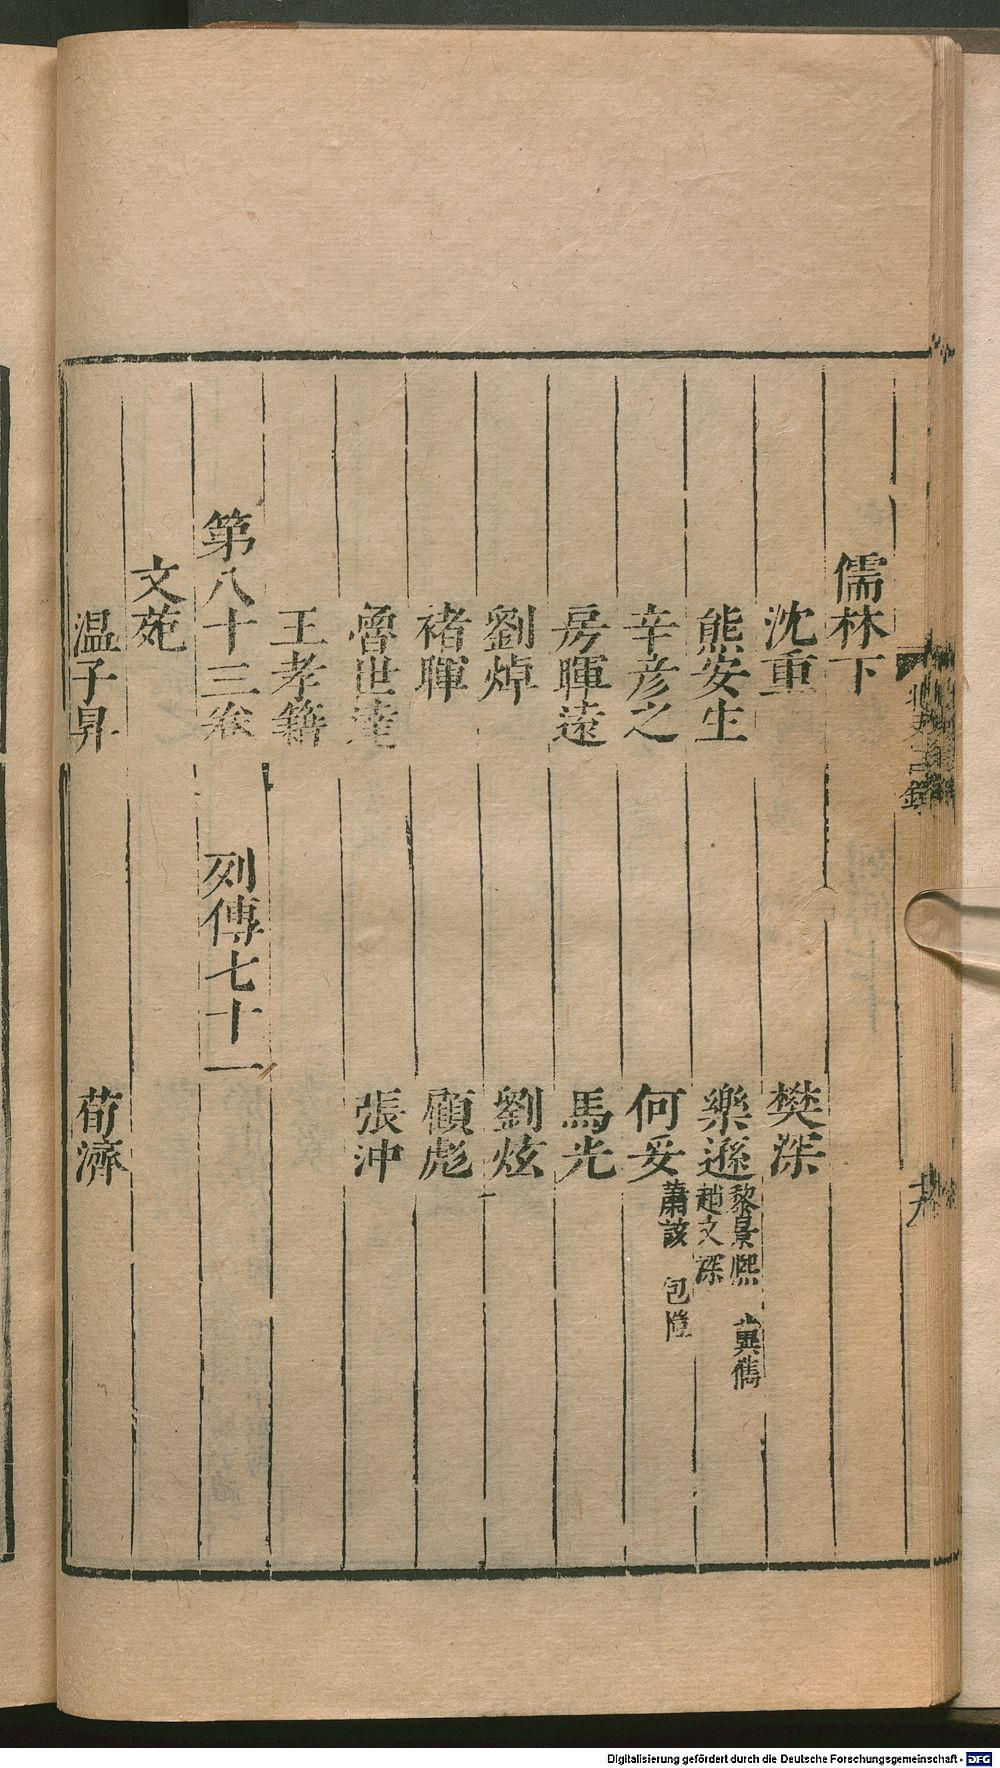 儒林下
沈重 樊深
熊安生 樂遜 黎景熙 冀儁 趙文深
辛彦之 何妥 蕭該 包愷
房暉遠 馬光
劉焯 劉炫
褚暉 顧彪
魯世達 張沖
王孝籍
第八十三卷 列傳七十一
文苑
温子昇 荀濟
Digitalisierung gefördert durch die Deutsche Forschungsgemeinschaft - DFG